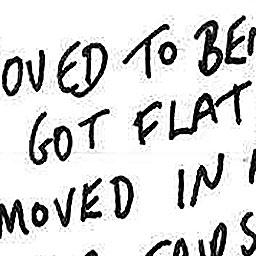 OVED TO BE
GOT FLAT
MOVED IN